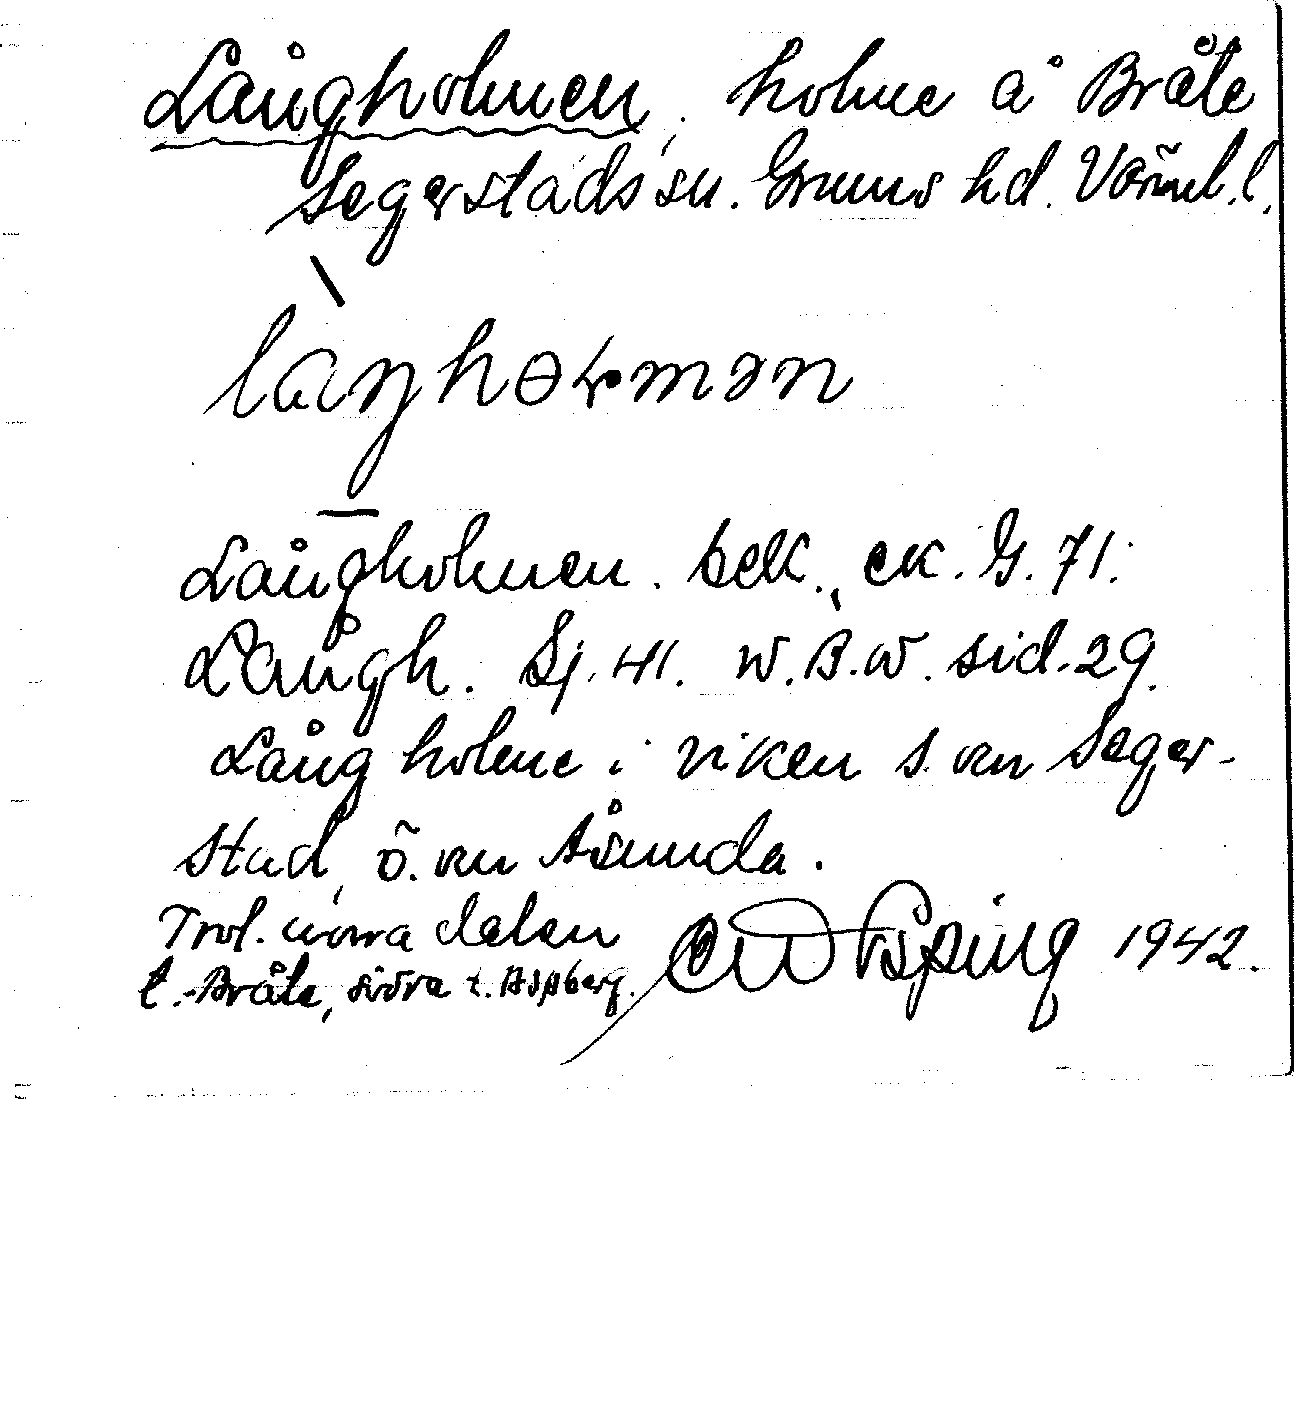 Långholmen, holme å Bråte
Segerstads sn. Grums hd. Värml. l.
låŋhɵɽmən
Långholmen. bek., ek. G. 71.
Långh. Sj. 41. W.B.W. sid. 29.
Lång holme i viken s. om Seger-
stad, ö. om Åsunda.
Trol. norra delen
t. Bråte, södra t. Aspberg.
1942.